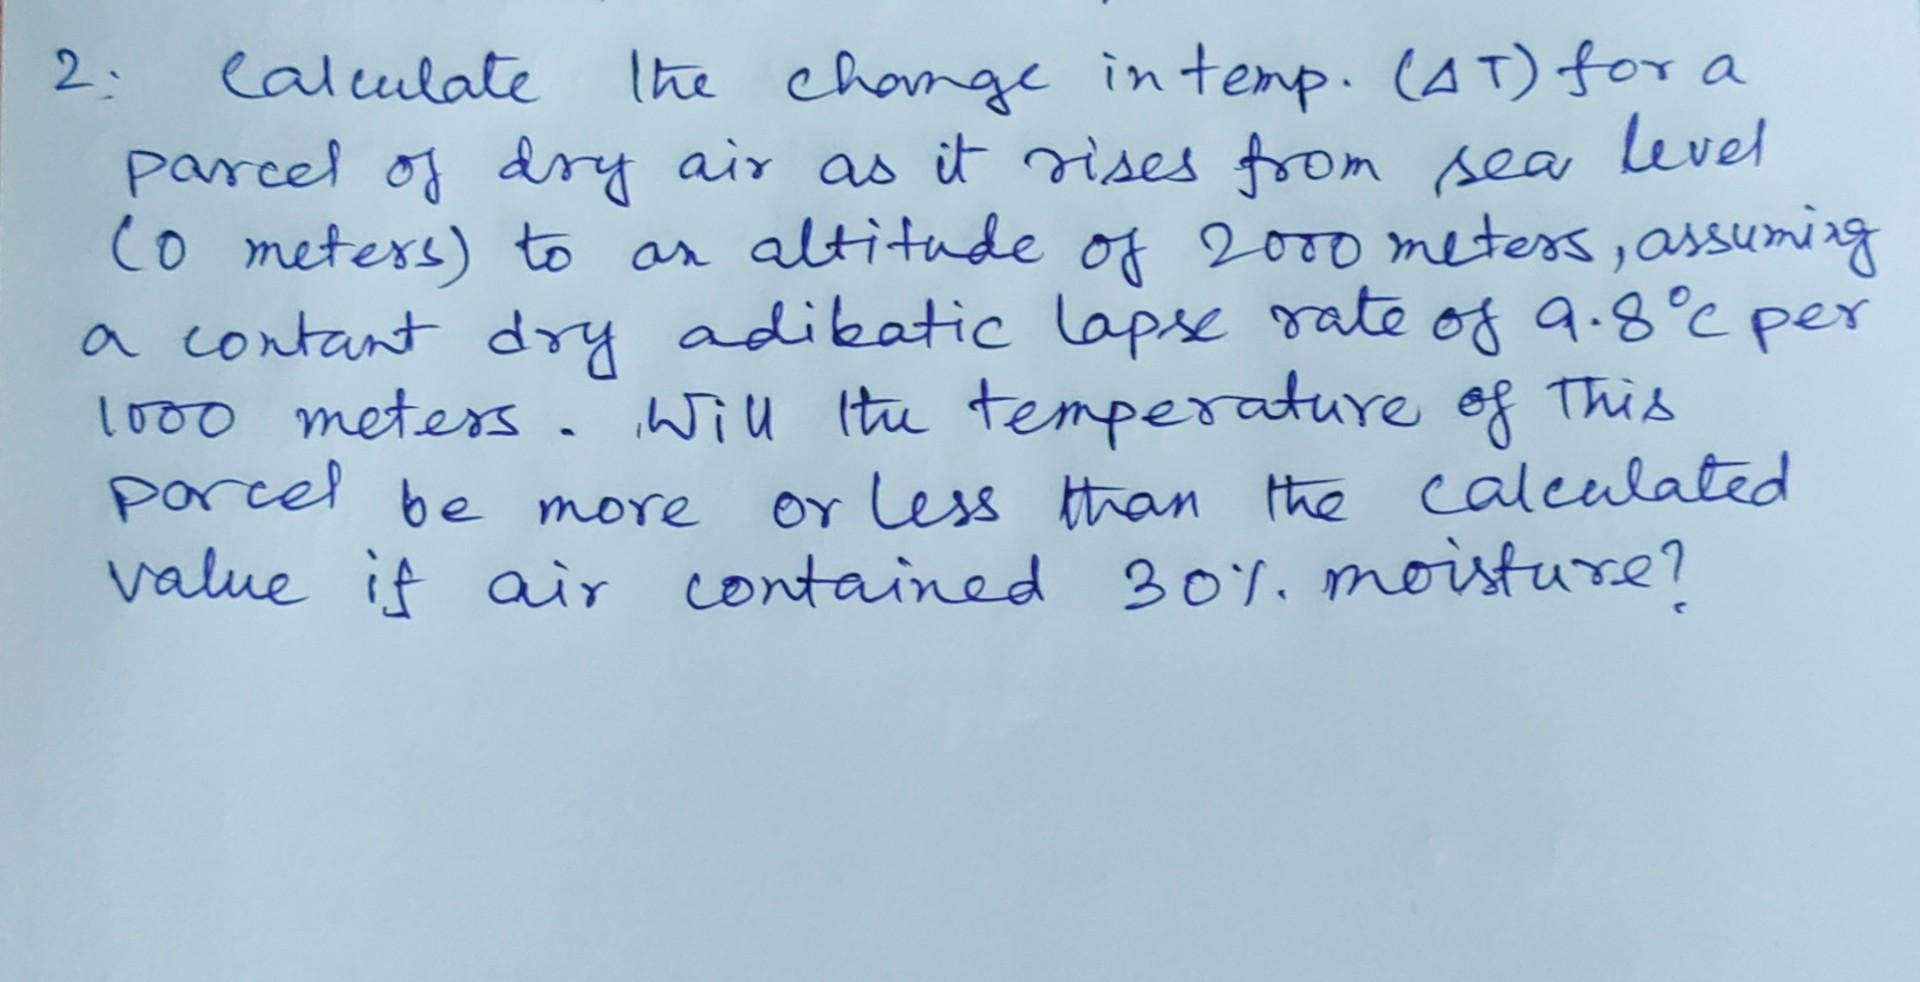 2: Calculate the change in temp. (ΔT) for a
parcel of dry air as it rises from sea level
(0 meters) to an altitude of 2000 meters, assuming
a contant dry adibatic lapse rate of 9.8°C per
1000 meters. Will the temperature of this
parcel be more or less than the calculated
value if air contained 30%. moisture?